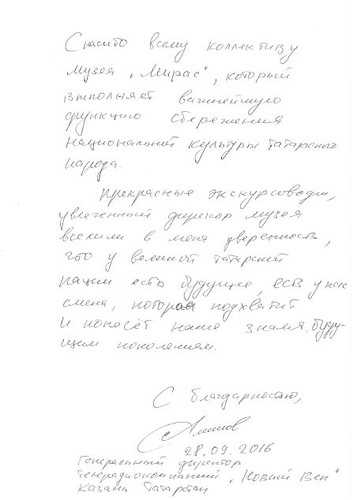 Спасибо всему коллективу
музея "Мирас", который
выполняет важнейшую
функцию сбережения
национальной культуры татарского
народа.
Прекрасные экскурсоводы,
увлеченный директор музея
вселили в меня уверенность,
что у великой татарской
нации есть будущее, есть у нее
смена, которая подхватит
и понесёт наше знамя буду-
щим поколениям.
С благодарностью,
28.09.2016
Генеральный директор
телерадиокомпании "Новый Век"
Казань Татарстан